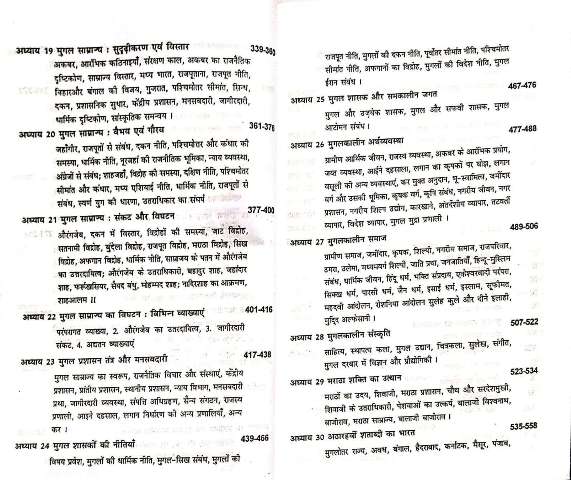 अध्याय 19 मुगल साम्राज्य : सुदृढ़ीकरण एवं विस्तार 339-360
अकबर, आरंभिक कठिनाइयाँ, संरक्षण काल, अकबर का राजनैतिक
दृष्टिकोण, साम्राज्य विस्तार, मध्य भारत, राजपूताना, राजपूत नीति,
बिहारऔर बंगाल की विजय, गुजरात, पश्चिमोत्तर सीमांत, सिन्ध,
दकन, प्रशासनिक सुधार, केंद्रीय प्रशासन, मनसबदारी, जागीरदारी,
धार्मिक दृष्टिकोण, सांस्कृतिक समन्वय ।
अध्याय 20 मुगल साम्राज्य : वैभव एवं गौरव 361-376
जहाँगीर, राजपूतों से संबंध, दकन नीति, पश्चिमोत्तर और कंधार की
समस्या, धार्मिक नीति, नूरजहां की राजनीतिक भूमिका, न्याय व्यवस्था,
अंग्रेजों से संबंध; शाहजहाँ, विद्रोह की समस्या, दक्षिण नीति, पश्चिमोत्तर
सीमांत और कंधार, मध्य एशियाई नीति, धार्मिक नीति, राजपूतों से
संबंध, स्वर्ण युग की धारणा, उत्तराधिकार का संघर्ष
अध्याय 21 मुगल साम्राज्य : संकट और विघटन 377-400
औरंगजेब, दकन में उत्तर, विद्रोहों की समस्याएं, जाट विद्रोह,
सतनामी विद्रोह, बुंदेला विद्रोह, राजपूत विद्रोह, मराठा विद्रोह, सिख
विद्रोह, अफगान विद्रोह, धार्मिक नीति, साम्राज्य के पतन में औरंगजेब
का उत्तरदायित्व; औरंगजेब के उत्तराधिकारी, बहादुर शाह, जहांदार
शाह, फर्रुखसियर, सैयद बंधु, मोहम्मद शाह; नादिरशाह का आक्रमण,
शाहआलम II
अध्याय 22 मुगल साम्राज्य का विघटन : विभिन्न व्याख्याएं 401-416
परंपरागत व्याख्या, 2. औरंगजेब का उत्तरदायित्व, 3. जागीरदारी
संकट, 4. अद्यतन व्याख्याएं
अध्याय 23 मुगल प्रशासन तंत्र और मनसबदारी 417-438
मुगल साम्राज्य का स्वरूप, राजनैतिक विचार और संस्थाएं, केंद्रीय
प्रशासन, प्रांतीय प्रशासन, स्थानीय प्रशासन, न्याय विभाग, मनसबदारी
प्रथा, जागीरदारी व्यवस्था, संपत्ति अधिग्रहण, सैन्य संगठन, राजस्व
प्रणाली, आइने दहसाला, लगान निर्धारण की अन्य प्रणालियाँ, अन्य
कर ।
अध्याय 24 मुगल शासकों की नीतियाँ 439-466
विषय प्रवेश, मुगलों की धार्मिक नीति, मुगल-सिख संबंध, मुगलों की
राजपूत नीति, मुगलों की दकन नीति, पूर्वोत्तर सीमांत नीति, पश्चिमोत्तर
सीमांत नीति, अफगानों का विद्रोह, मुगलों की विदेश नीति, मुगल
ईरान संबंध ।
अध्याय 25 मुगल शासक और समकालीन जगत 467-476
मुगल और उज़्बेक शासक, मुगल और सफवी शासक, मुगल
आटोमन संबंध ।
अध्याय 26 मुगलकालीन अर्थव्यवस्था 477-488
ग्रामीण आर्थिक जीवन, राजस्व व्यवस्था, अकबर के आरंभिक प्रयोग,
जब्त व्यवस्था, आईने दहसाला, लगान का कृषकों पर बोझ, लगान
वसूली की अन्य व्यवस्थाएं, कर मुक्त अनुदान, भू-स्वामित्व, जमींदार
वर्ग और उसकी भूमिका, कृषक वर्ग, कृषि संबंध, नगरीय जीवन, नगर
प्रशासन, नगरीय शिल्प उद्योग, कारखाने, अंतर्देशीय व्यापार, तटवर्ती
व्यापार, विदेश व्यापार, मुगल मुद्रा प्रणाली ।
अध्याय 27 मुगलकालीन समाज 489-506
ग्रामीण समाज, जमींदार, कृषक, शिल्पी, नगरीय समाज, राजपरिवार,
उमरा, उलेमा, मध्यमवर्ग शिल्पी, जाति प्रथा, जनजातियाँ, हिन्दू-मुस्लिम
संबंध, धार्मिक जीवन, हिंदू धर्म, भक्ति संप्रदाय, एकेश्वरवादी परंपरा,
सिक्ख धर्म, पारसी धर्म, जैन धर्म, इसाई धर्म, इस्लाम, सूफीमत,
महदवी आंदोलन, रोशनिया आंदोलन सुलेह कुले और दीने इलाही,
मुजद्दिद अल्फेसानी ।
अध्याय 28 मुगलकालीन संस्कृति 507-522
साहित्य, स्थापत्य कला, मुगल उद्यान, चित्रकला, सुलेख, संगीत,
मुगल दरबार में विज्ञान और प्रौद्योगिकी ।
अध्याय 29 मराठा शक्ति का उत्थान 523-534
मराठों का उदय, शिवाजी, मराठा प्रशासन, चौथ और सरदेशमुखी,
शिवाजी के उत्तराधिकारी, पेशवाओं का उत्कर्ष, बालाजी विश्वनाथ,
बाजीराव, मराठा साम्राज्य, बालाजी बाजीराव ।
अध्याय 30 अठारहवीं शताब्दी का भारत 535-558
मुगलोत्तर राज्य, अवध, बंगाल, हैदराबाद, कर्नाटक, मैसूर, पंजाब,